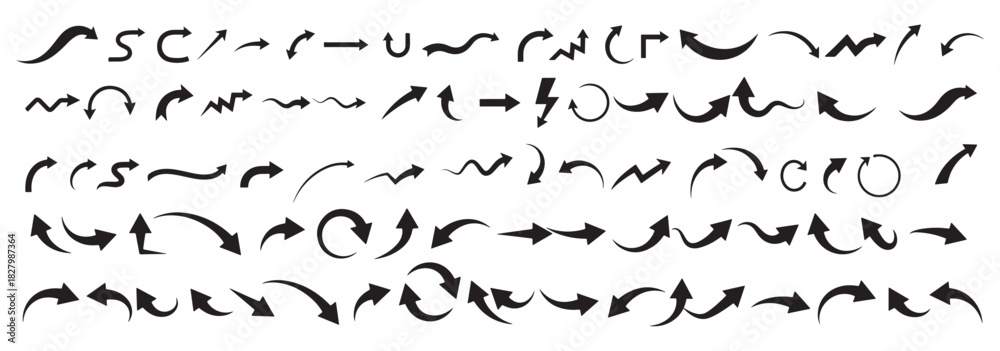 Adobe Stock | #1827987364